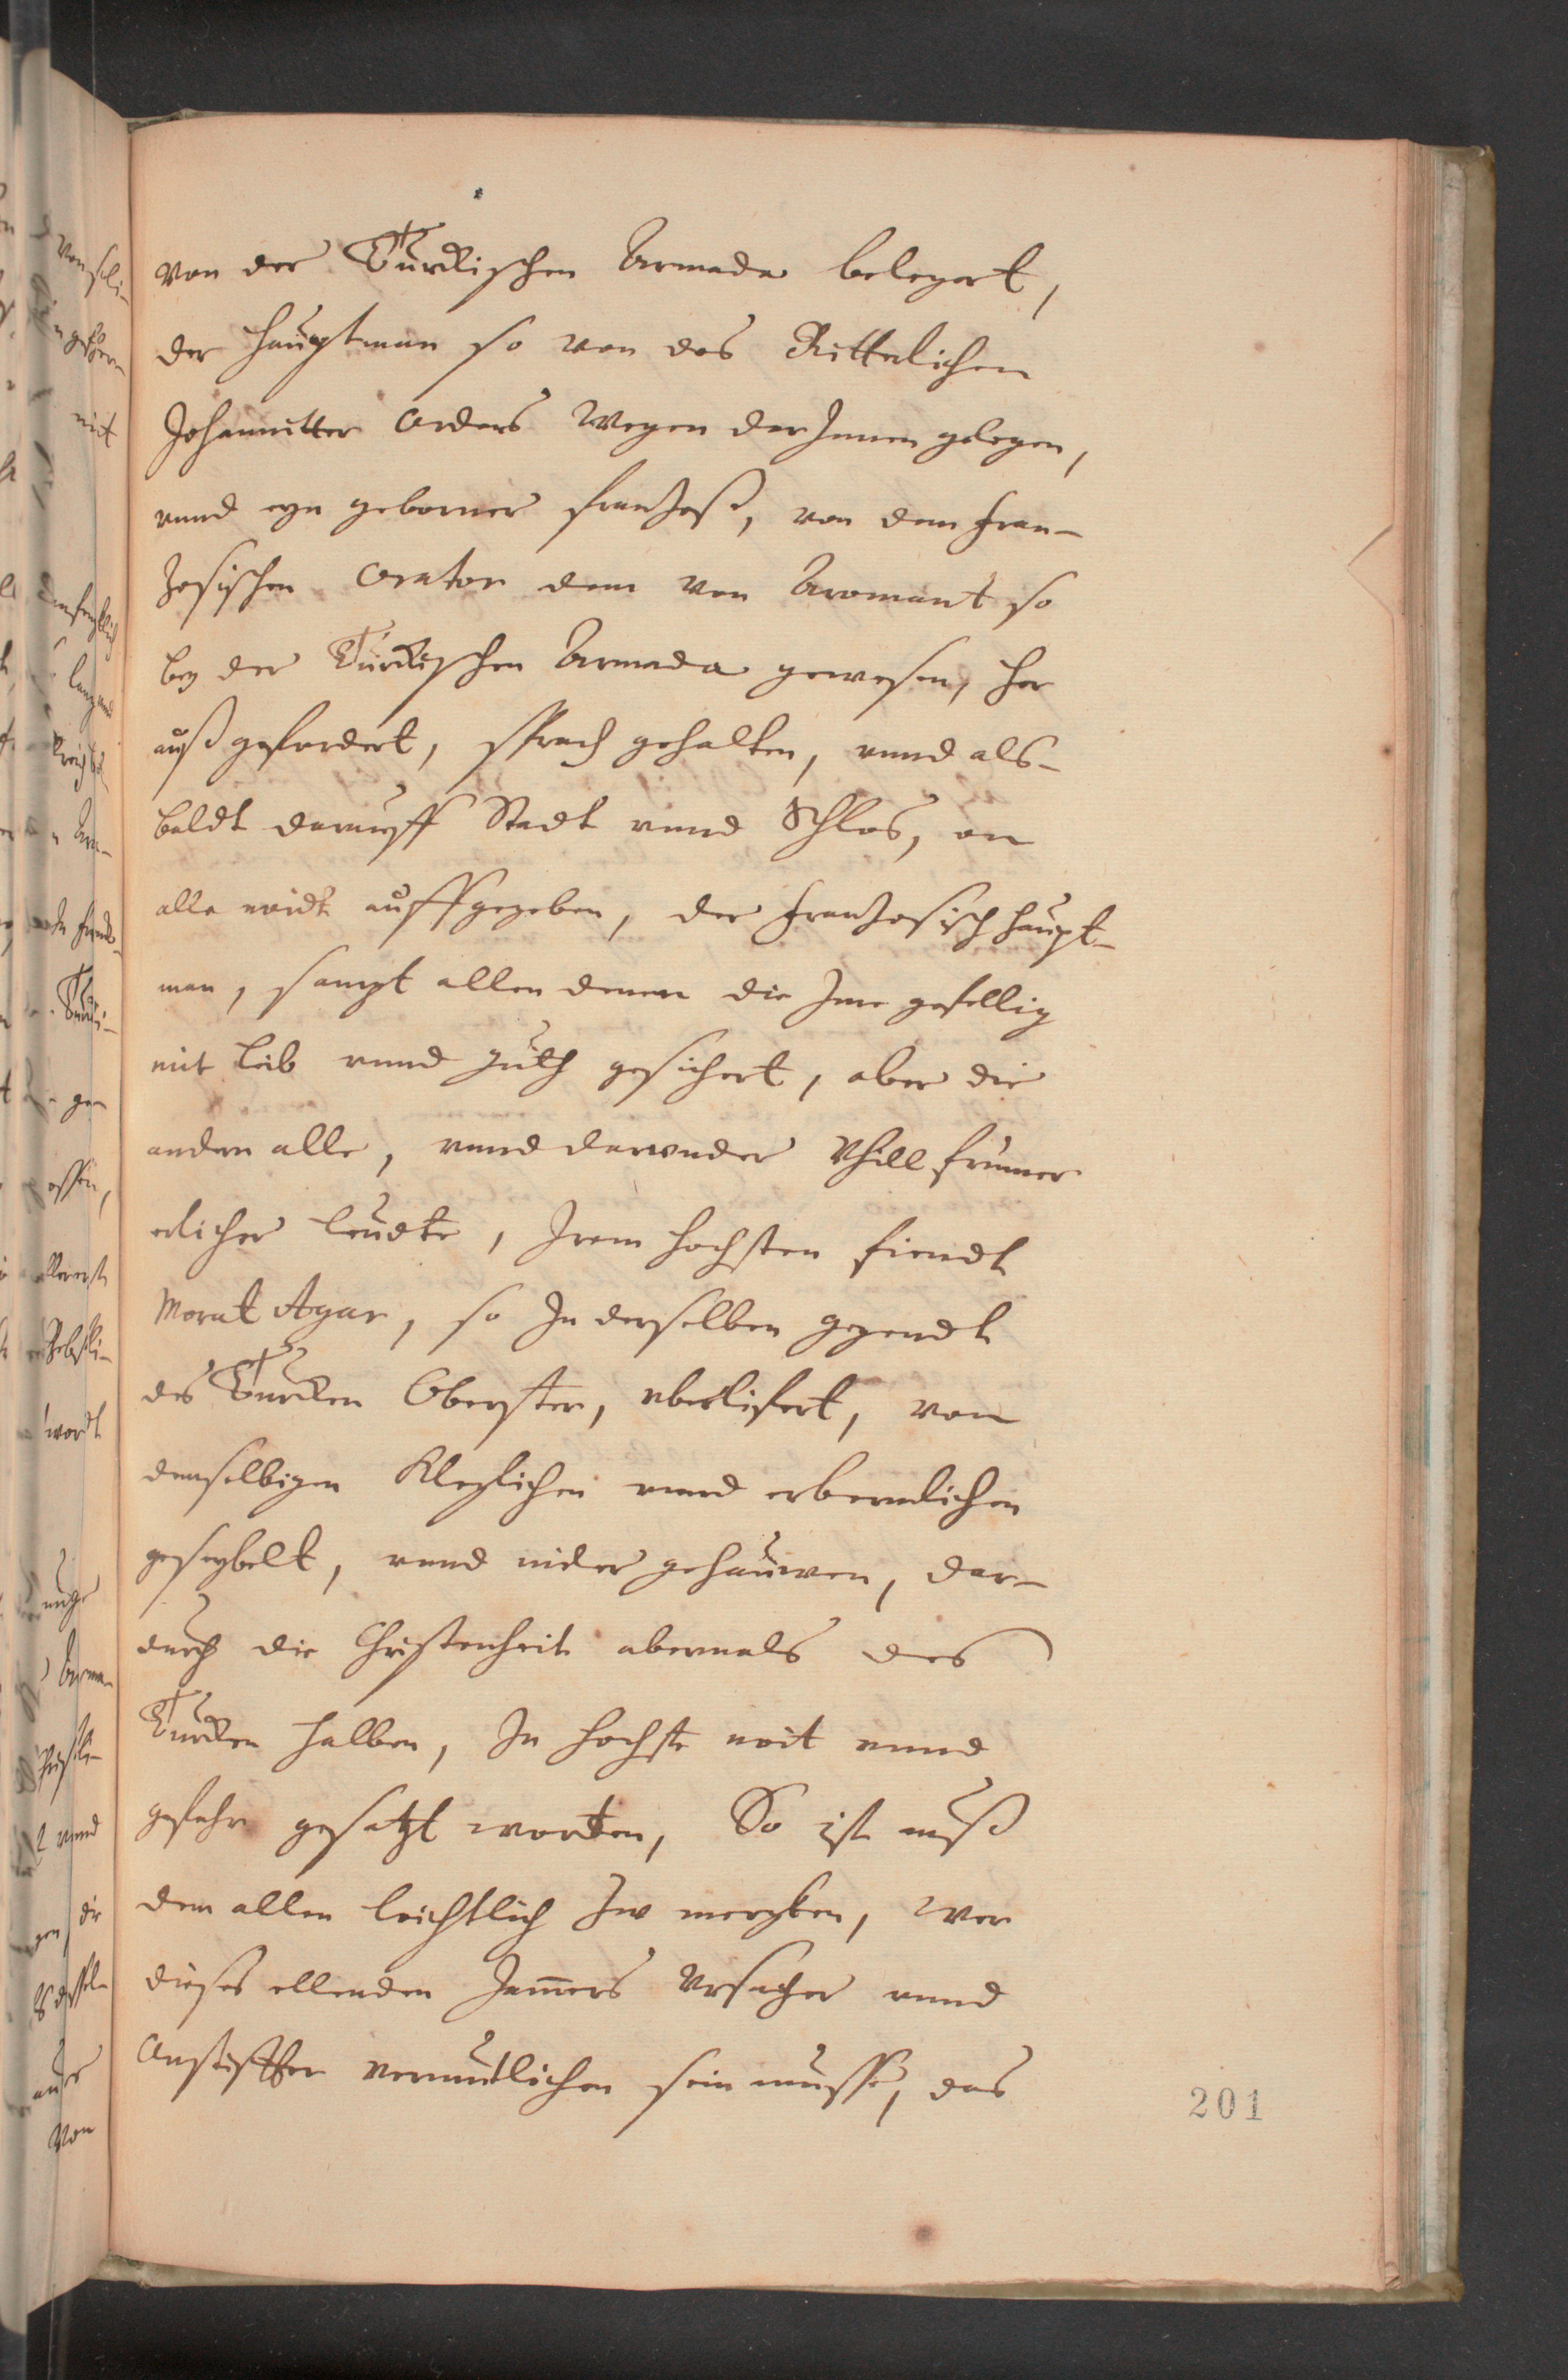 von der Türckischen Armada belegert,
der Hauptman so von des Ritterlichen
Johannitter Ordens Wegen darJnnen gelegen,
vnnd eyn geborner franzoß, von dem fran-
zosischen Orator dem von Aromant so
bey der Türckischen Armada gewesen, her
auß gefordert, sprach gehalten, vnnd als-
baldt darauff Stadt vnnd Schlos, on
alle noidt auffgegeben, der franzosisch haupt-
man, sampt allen denen die Jme gefellig
mit leib vnnd guth gesichert, aber die
andern alle, vnnd darvnder Vhill frummer
erlicher leudte, Jrem hochsten fiendt
Morat Agar, so Jn derselben gegendt
des Turcken Oberster, vberlifert, von
demselbigen kleglichen vnnd erbermlichen
geseybelt, vnnd nider gehauwen, dar-
durch die Christenheit abermals des
Turcken halben, Jn hochste noit vnnd
gefahr gesatzt worden, So ist auß
dem allen leichtlich Zw mercken, Wer
dieses ellenden Jam̄ers Vrsacher vnnd
Anstiffter vermutlichen sein musse, das
201